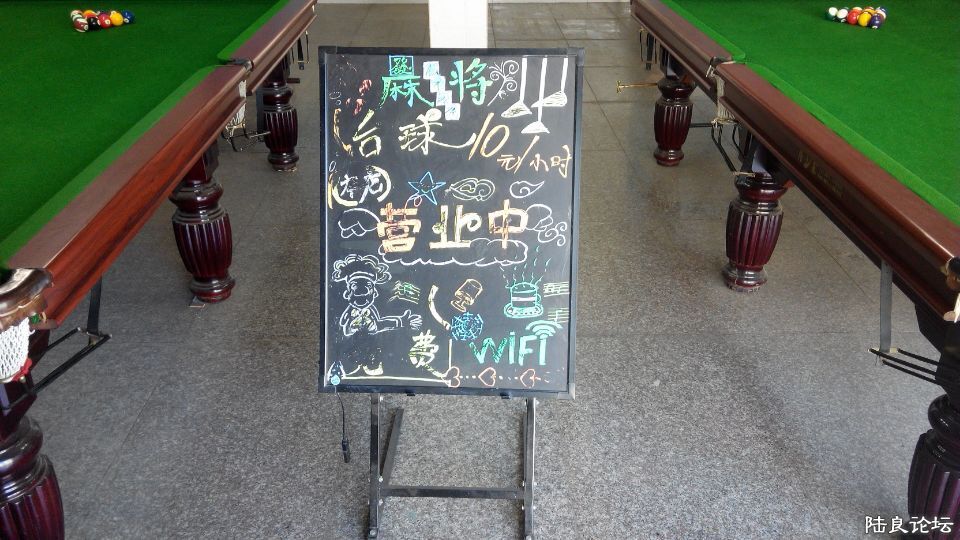 麻将
台球 10元/小时
营业中
免费 WiFi
陆良论坛